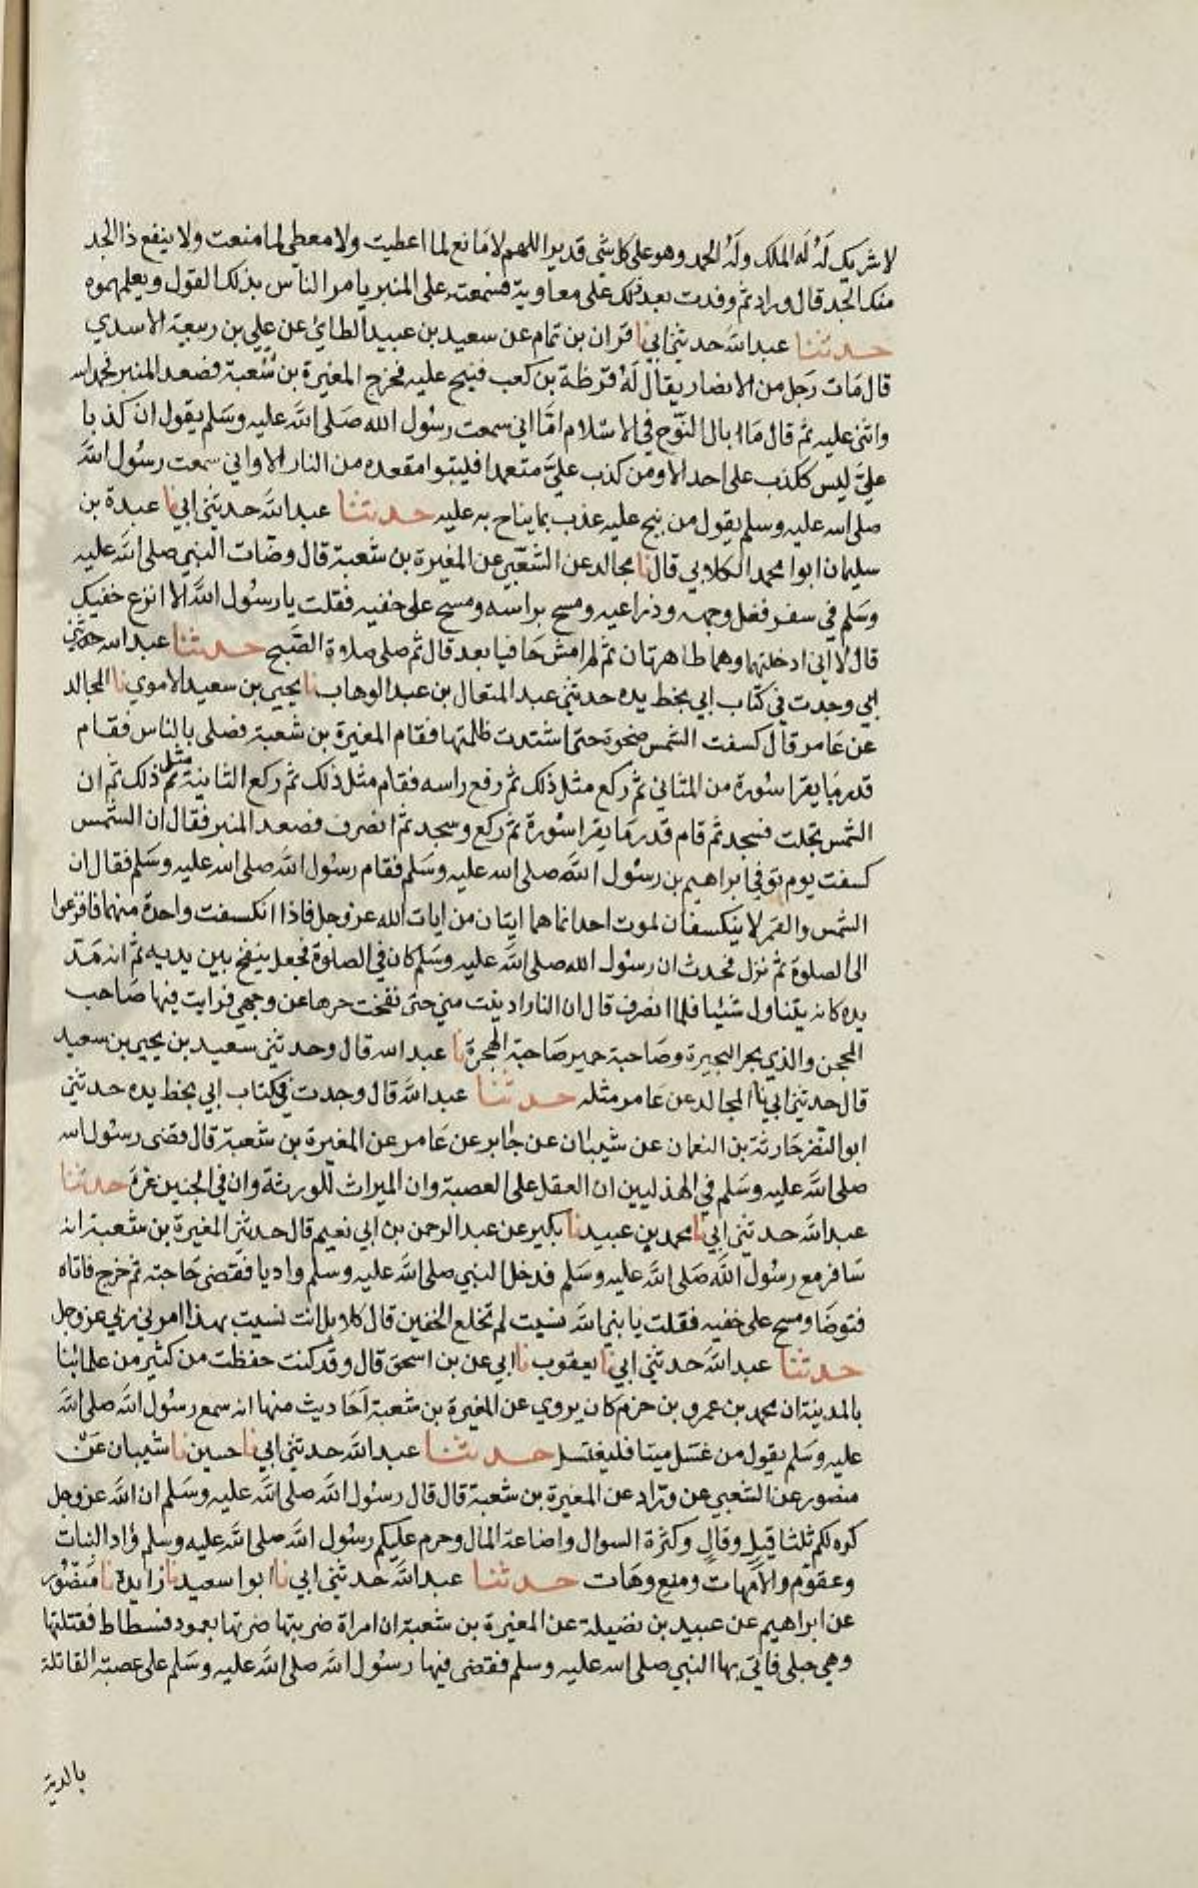 لا شريك لَهُ لَه الملك ولَهُ الحمد وهو على كل شى قدير اللهم لا مَانع لما اعطيت ولا معطى لما منعت ولا ينفع ذا الجد
منك الجد قال وراد ثم وفدت بعد ذلك على معاوية فسمعته على المنبر يامر الناس بذلك القول ويعلمهموه
حدثنا عبد الله حدثني ابي نا قران بن تمام عن سعيد بن عبيد الطائي عن علي بن ربيعة الاسدي
قال مَات رَجل من الانصار يقال لَهُ قرظة بن كعب فنيح عليه فخرج المغيرة بن شعبة فصعد المنبر فحمد الله
واثنى عليه ثم قال مَا بال النَّوح في الاسلام امَّا اني سمعت رسُول الله صَلى الله عليه وسَلم يقول ان كذبا
عليَّ ليس ككذب على احد الا ومن كذب عليَّ متعمدا فليتبوا مقعده من النار الا واني سمعت رسُول الله
صلى الله عليه وسلم يقول من نيح عليه عذب بما يناح به عليه حدثنا عبد الله حدثني ابي نا عبدة بن
سليمان ابوا محمد الكلابي قال نا مجالد عن الشعبي عن المغيرة بن شعبة قال وضات النبي صلى الله عليه
وسَلم في سفر فغسل وجهه وذراعيه ومسح براسه ومسح على خفيه فقلت يا رسُول الله الا انزع خفيك
قال لا اني ادخلتهما وهما طاهرتان ثم لم امش حَافيا بعد قال ثم صلى صلاة الصّبح حدثنا عبد الله حدثني
ابي وجدت في كتاب ابي بخط يده حدثني عبد المتعال بن عبد الوهاب نا يحيى بن سعيد الاموي نا المجالد
عن عَامر قال كسفت الشمس ضحوة حتى اشتدت ظلمتها فقام المغيرة بن شعبة فصلى بالناس فقام
قدر مَا يقرا سُورة من المثاني ثم ركع مثل ذلك ثم رفع راسه فقام مثل ذلك ثم ركع الثانية مثل ذلك ثم ان
الشمس تجلت فسجد ثم قام قدر مَا يقرا سُورة ثم ركع وسجد ثم انصرف فصعد المنبر فقال ان الشمس
كسفت يوم توفي ابراهيم بن رسُول الله صلى الله عليه وسَلم فقام رسُول الله صلى الله عليه وسَلم فقال ان
الشمس والقمر لا ينكسفان لموت احد انما هما ايتان من ايات الله عز وجل فاذا انكسفت واحدة منهما فافزعوا
الى الصلوة ثم نزل فحدث ان رسُول الله صلى الله عليه وسَلم كان في الصلوة فجعل ينفخ بين يديه ثم انه مَد
يده كانه يتناول شئيا فلما انصرف قال ان النار ادنيت مني حتى نفخت حرها عن وجهي فرايت فيها صَاحب
المحجن والذي بحر البحيرة وصَاحبة حمير صَاحبة الهجرة نا عبد الله قال وحدثني سعيد بن يحيى بن سعيد
قال حدثني ابي نا المجالد عن عَامر مثله حدثنا عبد الله قال وجدت في كتاب ابي بخط يده حدثني
ابو النضر حَارثة بن النعمان عن شيبان عن جَابر عن عَامر عن المغيرة بن شعبة قال قضى رسُول الله
صلى الله عليه وسَلم في الهذليين ان العقل على العصبة وان الميراث للورثة وان في الجنين غرةَ حدثنا
عبد الله حدثني ابي نا محمد بن عبيد نا بكير عن عبد الرحمن بن ابي نعيم قال حدثني المغيرة بن شعبة انه
سَافر مع رسُول الله صَلى الله عليه وسَلم فدخل النبي صلى الله عليه وسلم واديا فقضى حَاجته ثم خرج فاتاه
فتوضا ومسح على خفيه فقلت يا نبي الله نسيت لم تخلع الخفين قال كلا بل انت نسيت بهذا امرني ربي عز وجل
حدثنا عبد الله حدثني ابي نا يعقوب نا ابي عن بن اسحق قال وقد كنت حفظت من كثير من علمائنا
بالمدينة ان محمد بن عمرو بن حزم كان يروي عن المغيرة بن شعبة اَحَاديث منها انه سمع رسُول الله صلى الله
عليه وسَلم يقول من غسَل ميتا فليغتسل حدثنا عبد الله حدثني ابي نا حسين نا شيبان عَن
منصور عن الشعبي عن ورّاد عن المغيرة بن شعبة قال قال رسُول الله صلى الله عليه وسَلم ان الله عز وجل
كره لكم ثلثا قيل وقال وكثرة السوال واضاعة المال وحرم عليكم رسُول الله صلى الله عليه وسلم واد البنات
وعقوم والامهات ومنع وهَات حدثنا عبد الله حَدثني ابي نا ابوا سعيد نا زايدة نا مَنصُور
عن ابراهيم عن عبيد بن نضيلة عن المغيرة بن شعبة ان امراة ضربتها ضرتها بعمود فسطاط فقتلتها
وهي حبلى فاتى بها النبي صلى الله عليه وسلم فقضى فيها رسُول الله صلى الله عليه وسَلم على عصبة القاتلة
بالدية